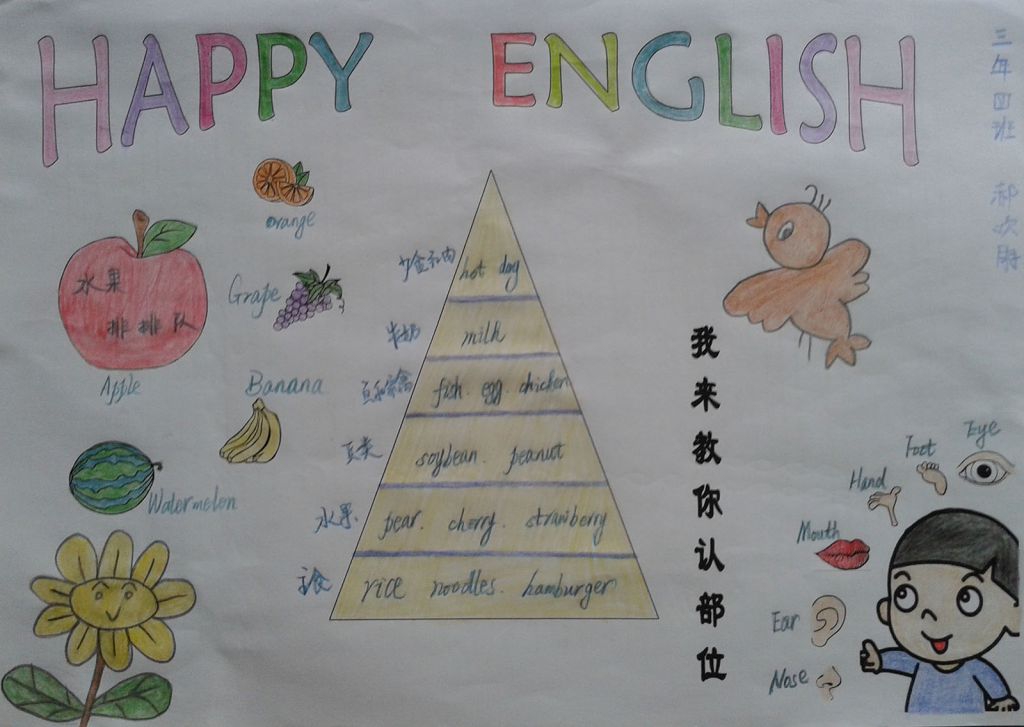 HAPPY ENGLISH
三年四班
orange
水果
排排队
Apple
Grape
Banana
Watermelon
hot dog
牛奶
milk
fish. egg. chicken
豆类
soybean. peanut
水果
pear. cherry. strawberry
主食
rice noodles. hamburger
我来教你认部位
Eye
Foot
Hand
Mouth
Ear
Nose